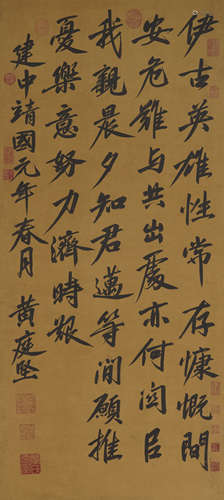 伊古英雄性常存慷慨間
安危難与共出處亦何関臣
我觀晨夕知君邁等閒願推
憂樂意努力濟時艱
建中靖國元年春月 黃庭堅